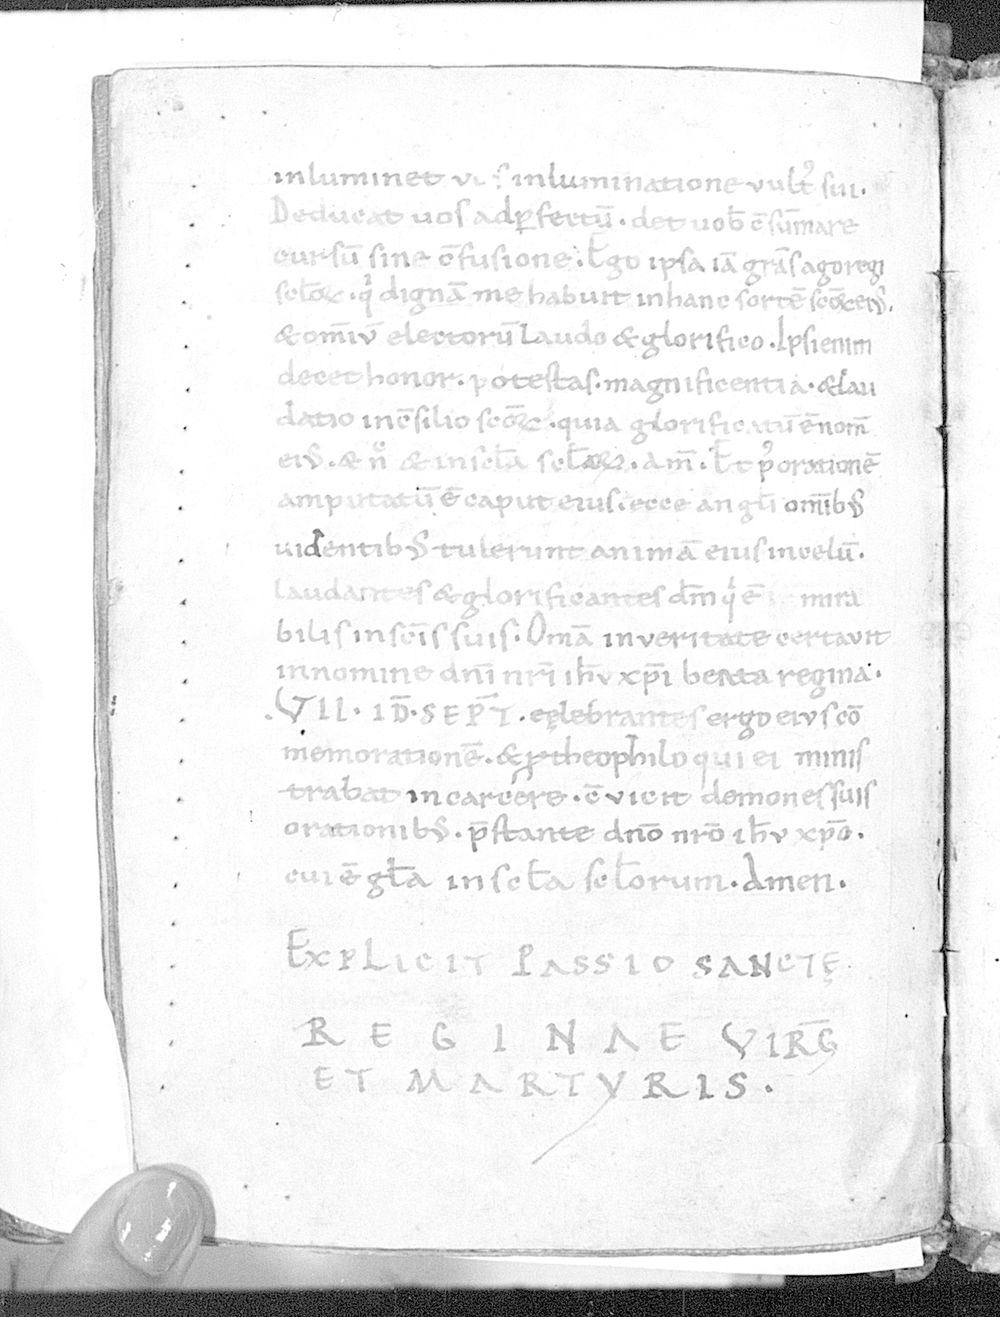 inluminet vos inluminatione vult᾿ sui.
Deducat uos adꝑfectū. det uob̄ c̄sūmare
cursū sine c̄fusione. Ego ipsa iā grās ago regi
sclōꝝ. qͥ dignā me habuit inhanc sortē scōꝝ eiꝰ.
&om̄iū electorū laudo &glorifico. Ipsi enim
decet honor. potestas. magnificentia. &lau
datio inc̄silio scōꝝ. quia glorificatū ē nom̄
eiꝰ. & nc̄ & inscl̄a scl̄oꝝ. am̄. Et pꝰ orationē
amputatū ē caput eius. ecce angli om̄ibꝰ
uidentibꝰ tulerunt animā eius incelū.
laudantes &glorificantes dm̄ qͥ ē in mira
bilis insc̄is suis. Oma᷃ inueritate certauit
innomine dn̄i nr̄i ih̄v xp̄i beata regina.
.VII. ID̄. SEPT̄. cęlebrantes ergo eivs cō
memorationē. &ꝓ theophilo qui ei minis
trabat incarcere. c̄vicit demones suis
orationibꝰ. p̄stante dn̄o nr̄o ih̄v xp̄o.
cui ē gl̄a inscl̄a scl̄orum. Amen.
EXPLICIT PASSIO SANCTĘ
REGINAE VIRḠ
ET MARTYRIS.